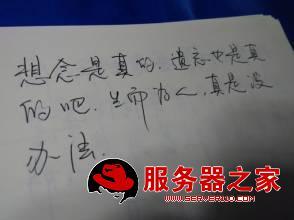 想念是真的.遗忘也是真
的吧.生而为人,真是没
办法.
服务器之家